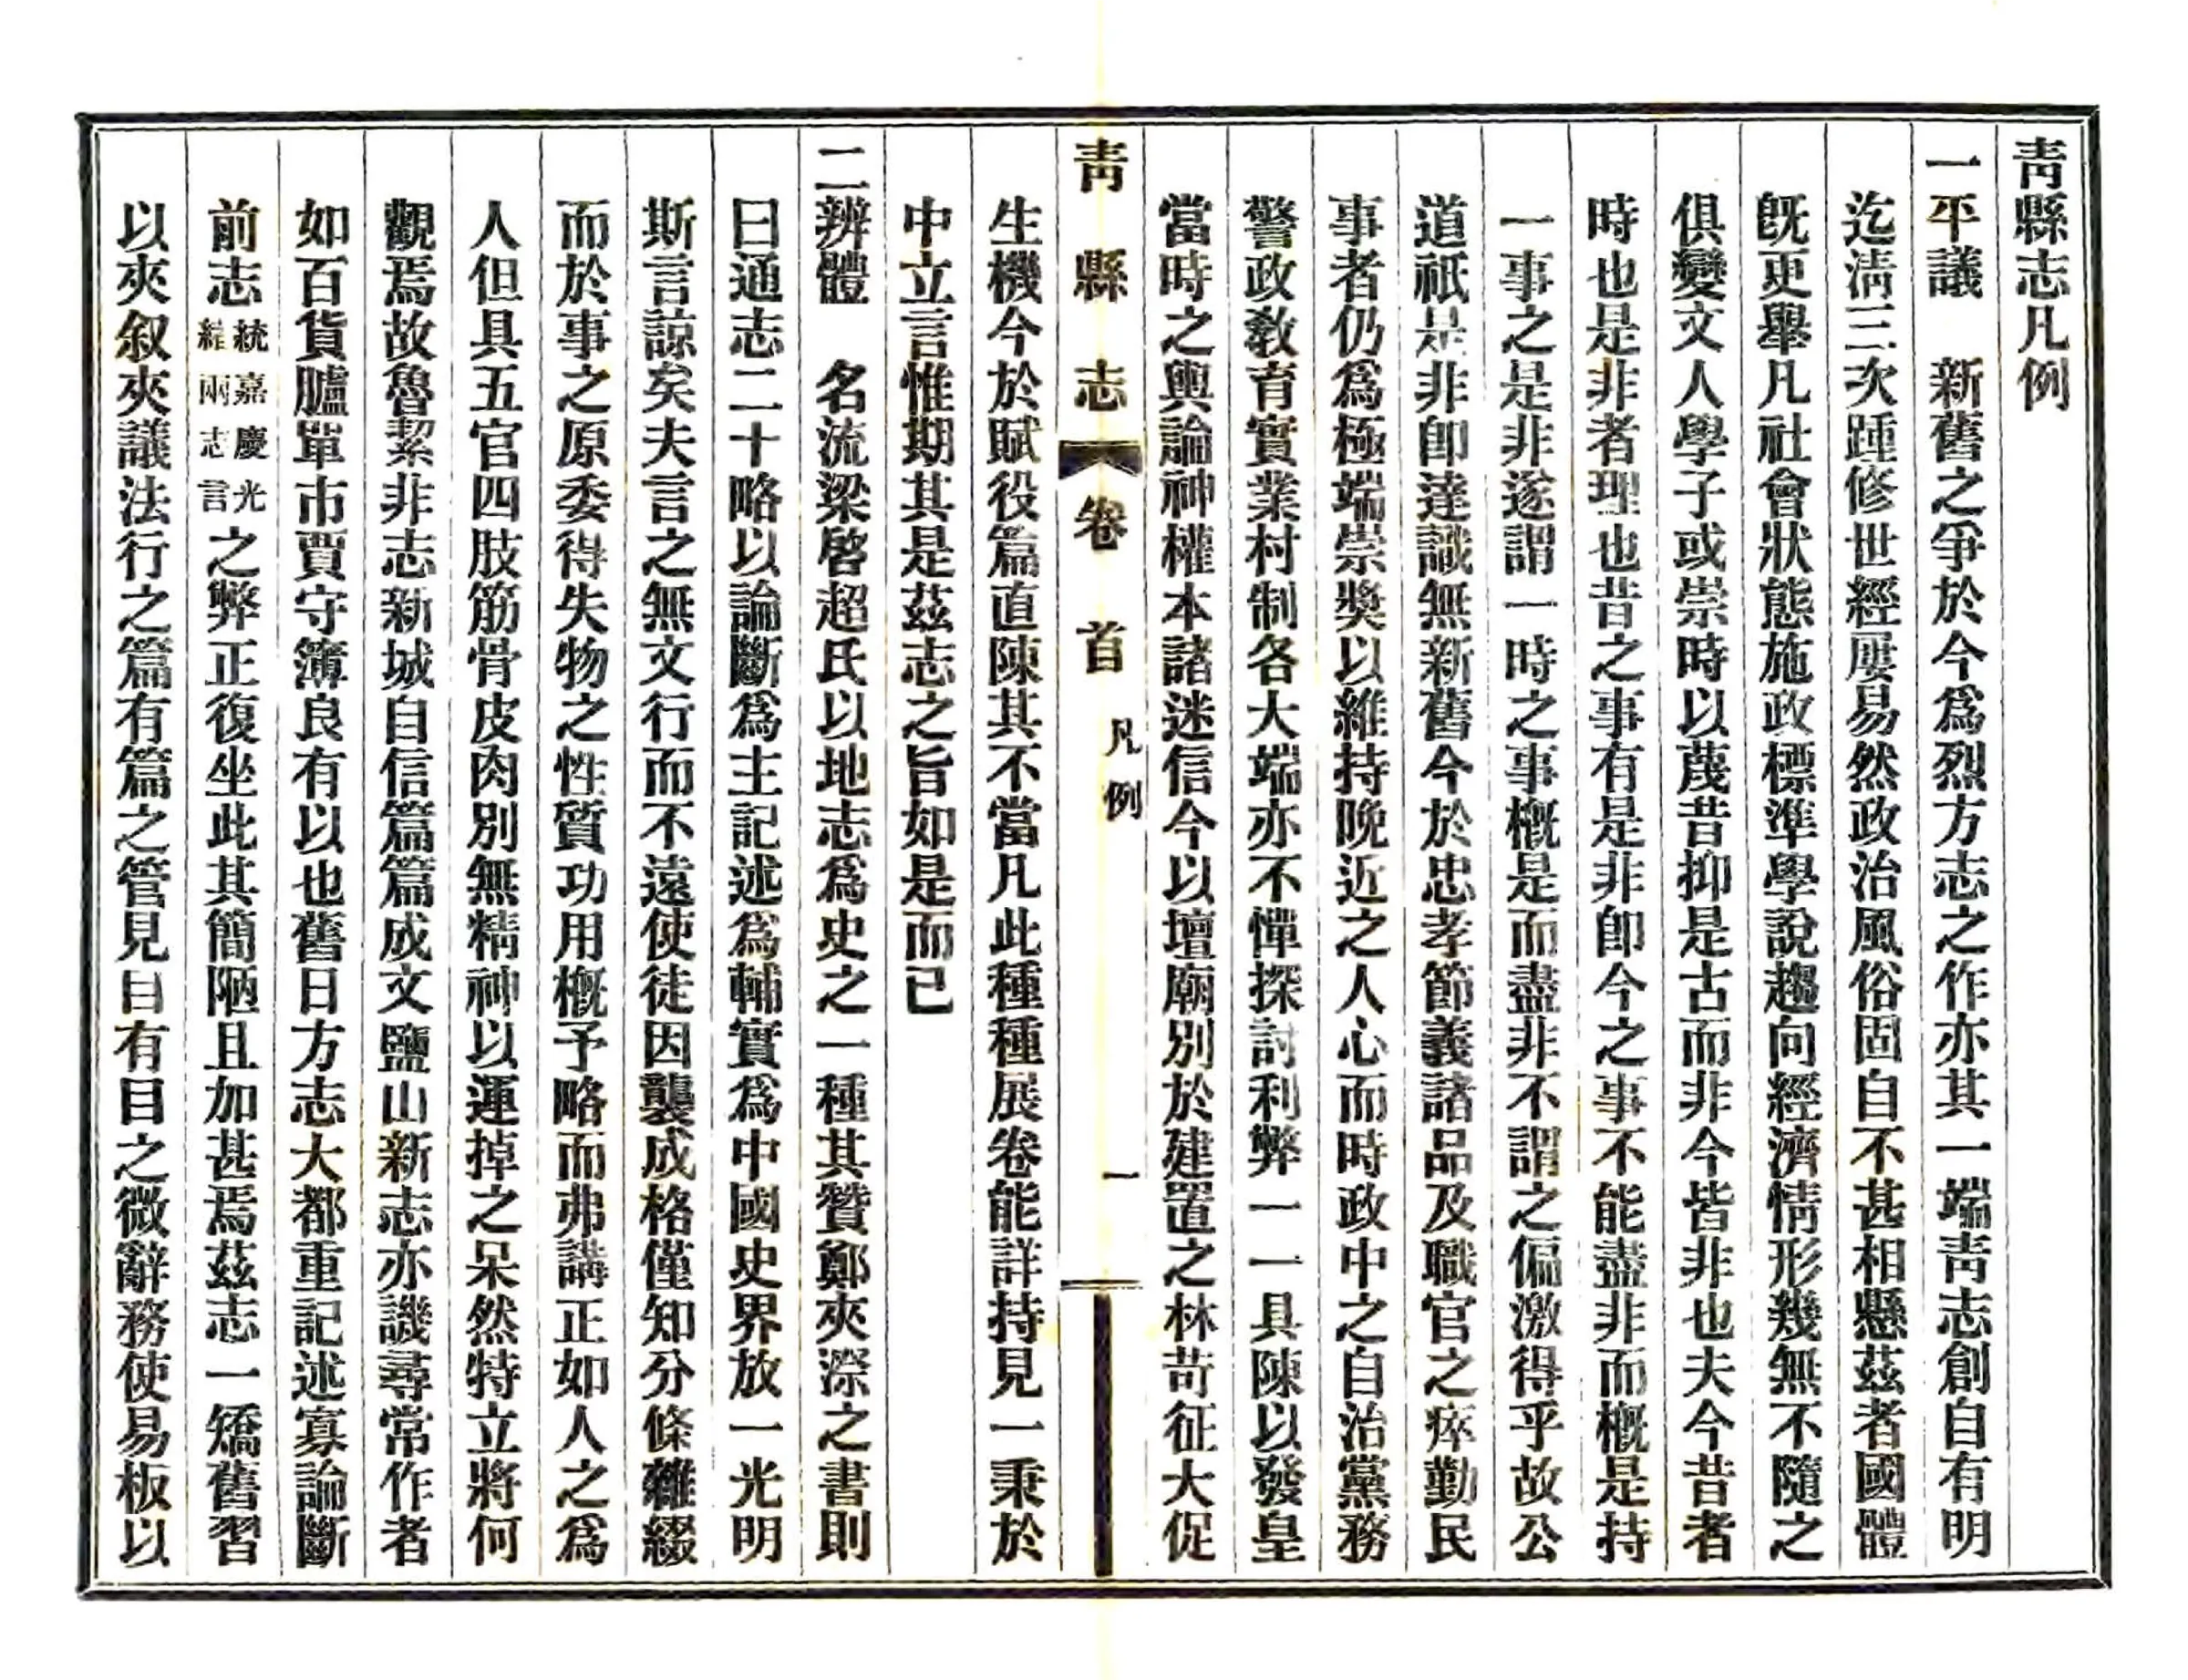 靑縣志凡例
一平議　新舊之爭於今爲烈方志之作亦其一端靑志創自有明
迄淸三次踵修世經屢易然政治風俗固自不甚相懸茲者國體
旣更舉凡社會狀態施政標準學說趨向經濟情形幾無不隨之
俱變文人學子或崇時以蔑昔抑是古而非今皆非也夫今昔者
時也是非者理也昔之事有是非卽今之事不能盡非而槪是持
一事之是非遂謂一時之事槪是而盡非不謂之偏激得乎故公
道祇是非卽達識無新舊今於忠孝節義諸品及職官之瘁勤民
事者仍爲極端崇奬以維持晚近之人心而時政中之自治黨務
警政敎育實業村制各大端亦不憚探討利弊一一具陳以發皇
當時之輿論神權本諸迷信今以壇廟別於建置之林苛征大促
靑縣志 卷首 凡例 一
生機今於賦役篇直陳其不當凡此種種展卷能詳持見一秉於
中立言惟期其是茲志之旨如是而已
二辨體　名流梁啓超氏以地志爲史之一種其贊鄭夾漈之書則
曰通志二十略以論斷爲主記述爲輔實爲中國史界放一光明
斯言諒矣夫言之無文行而不遠使徒因襲成格僅知分條雜綴
而於事之原委得失物之性質功用槪予略而弗講正如人之爲
人但具五官四肢筋骨皮肉別無精神以運掉之呆然特立將何
觀焉故魯絜非志新城自信篇篇成文鹽山新志亦譏尋常作者
如百貨臚單市賈守簿良有以也舊日方志大都重記述寡論斷
前志統嘉慶光緖兩志言之弊正復坐此其簡陋且加甚焉茲志一矯舊習
以夾叙夾議法行之篇有篇之管見目有目之微辭務使易板以